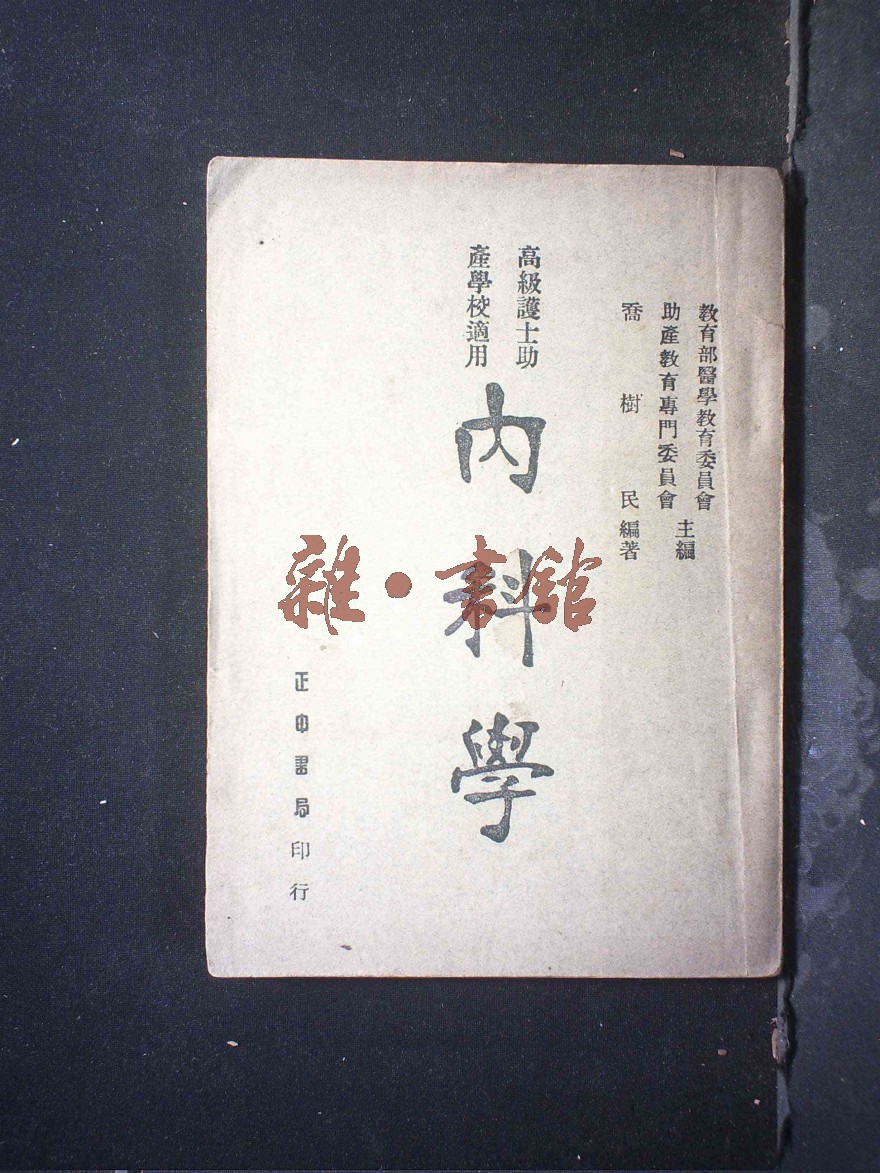 教育部醫學教育委員會
助產教育專門委員會
主編
喬樹民編著
高級護士助
產學校適用
內科學
正中書局印行
雜·書館